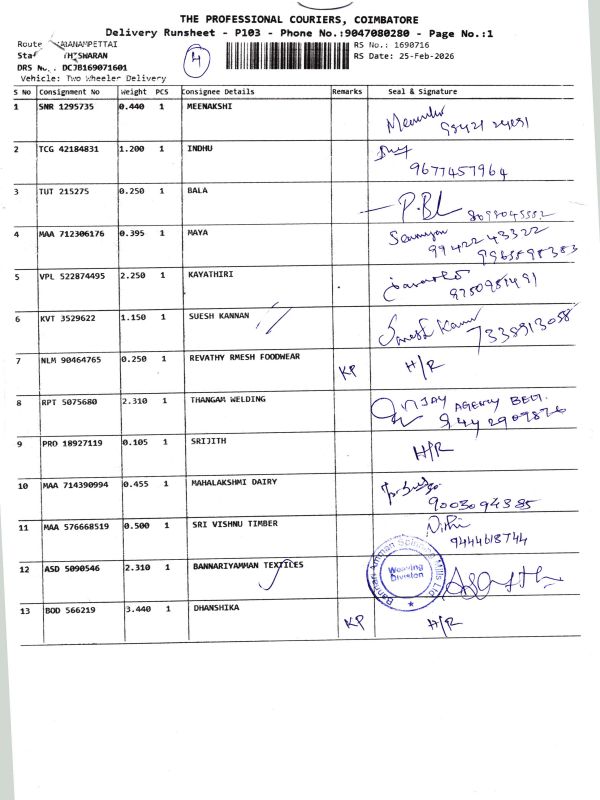 THE PROFESSIONAL COURIERS, COIMBATORE
Delivery Runsheet - P103 - Phone No.:9047080280 - Page No.:1
Route
RS No.: 1690716
4
RS Date: 25-Feb-2026
DRS No. : DCJB169071601
Vehicle: Two Wheeler Delivery
S No Consignment No Weight PCS Consignee Details Remarks Seal & Signature
1 SNR 1295735 0.440 1 MEENAKSHI
2 TCG 42184831 1.200 1 INDHU 9677457964
3 TUT 215275 0.250 1 BALA P.BL
4 MAA 712306176 0.395 1 MAYA 9942243322
5 VPL 522874495 2.250 1 KAYATHIRI
6 KVT 3529622 1.150 1 SUESH KANNAN 7338913058
7 NLM 90464765 0.250 1 REVATHY RMESH FOODWEAR KP H/R
8 RPT 5075680 2.310 1 THANGAM WELDING VIJAY AGENCY BELT.
9442909876
9 PRO 18927119 0.105 1 SRIJITH H/R
10 MAA 714390994 0.455 1 MAHALAKSHMI DAIRY 9003094385
11 MAA 576668519 0.500 1 SRI VISHNU TIMBER Nithi
9444618744
12 ASD 5090546 2.310 1 BANNARIYAMMAN TEXTILES Weaving Division
13 BOD 566219 3.440 1 DHANSHIKA KP H/R